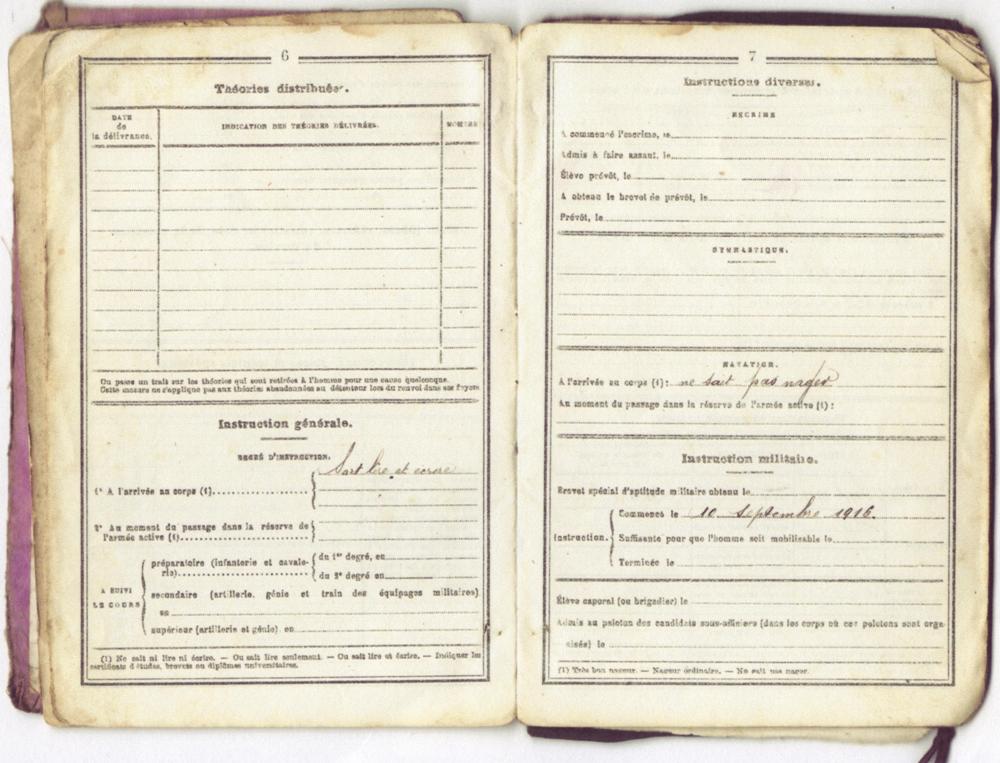 6
Théories distribuées.
DATE
de
la délivrance.
INDICATION DES THÉORIES DÉLIVRÉES.
NOMBRE
On passe un trait sur les théories qui sont retirées à l'homme pour une cause quelconque.
Cette mesure ne s'applique pas aux théories abandonnées au détenteur lors du renvoi dans ses foyers
Instruction générale.
DEGRÉ D'INSTRUCTION.
1° A l'arrivée au corps (1). Sait lire et écrire
2° Au moment du passage dans la réserve de
l'armée active (1).
A SUIVI
LE COURS
préparatoire (infanterie et cavale-
rie)
du 1er degré, en
du 2e degré en
secondaire (artillerie, génie et train des équipages militaires)
en
supérieur (artillerie et génie) en
(1) Ne sait ni lire ni écrire. — Ou sait lire seulement. — Ou sait lire et écrire. — Indiquer les
certificats d'études, brevets ou diplômes universitaires.
7
Instructions diverses.
ESCRIME
A commencé l'escrime, le
Admis à faire assaut, le
Élève prévôt, le
A obtenu le brevet de prévôt, le
Prévôt, le
GYMNASTIQUE.
NATATION.
A l'arrivée au corps (1) : ne sait pas nager
Au moment du passage dans la réserve de l'armée active (1) :
Instruction militaire.
Brevet spécial d'aptitude militaire obtenu le
Instruction.
Commencé le 10 septembre 1916.
Suffisante pour que l'homme soit mobilisable le
Terminée le
Élève caporal (ou brigadier) le
Admis au peloton des candidats sous-officiers (dans les corps où ces pelotons sont orga-
nisés) le
(1) Très bon nageur. — Nageur ordinaire. — Ne sait pas nager.